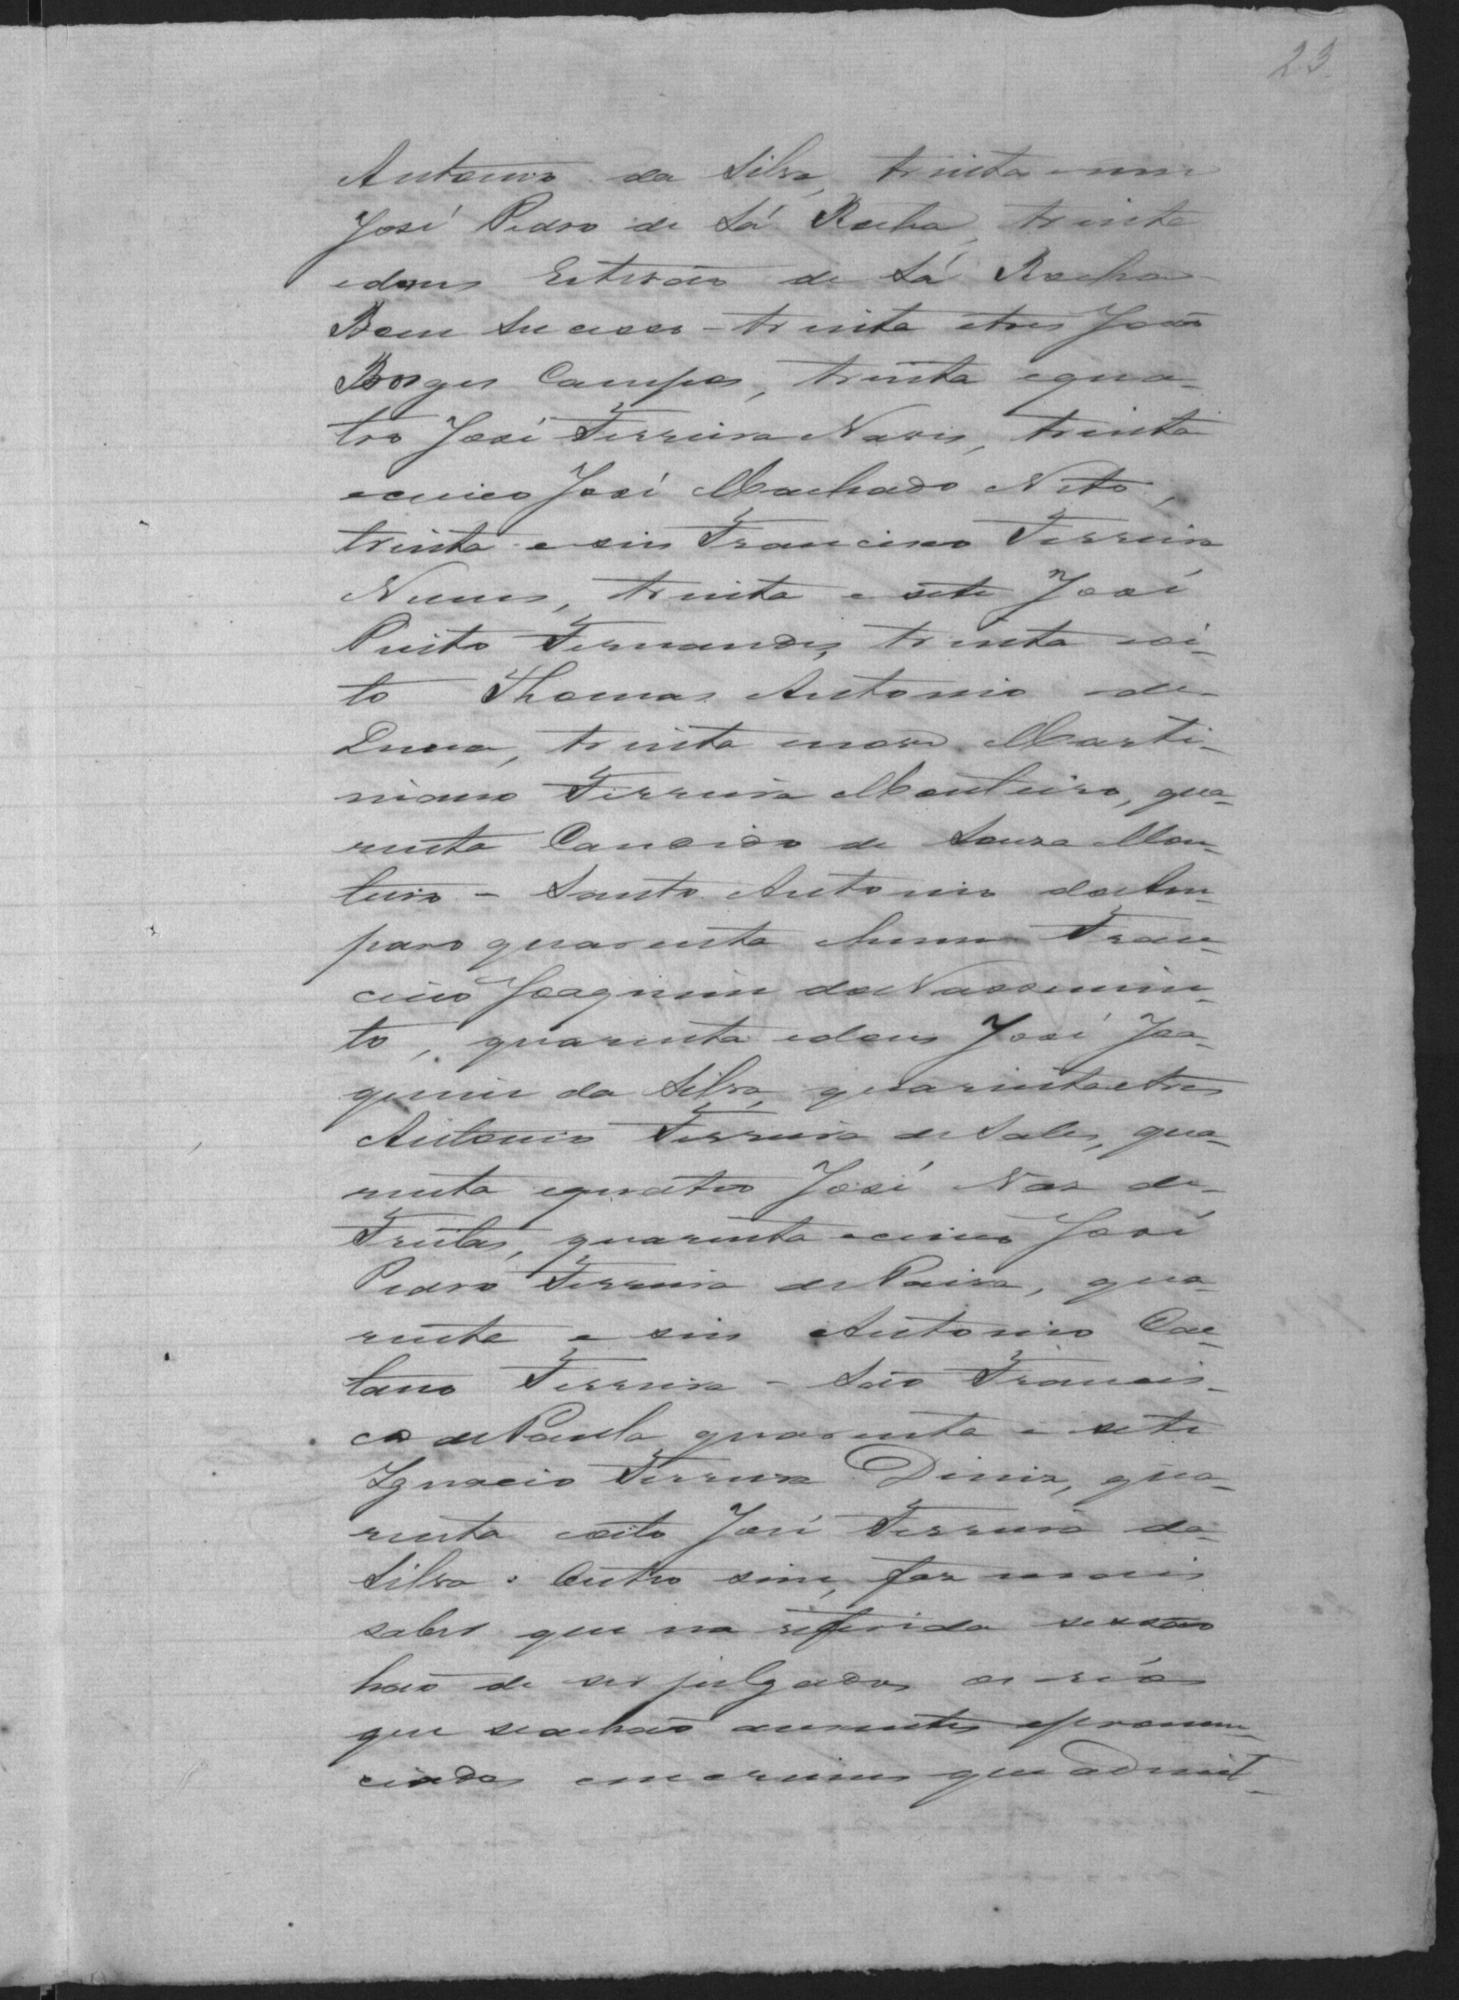 23
Antonio da Silva, trinta e um
José Pedro de Sá Rocha, trinta
edous Estevão de Sá Rocha
Bom Sucesso - trinta etres João
Borges Campos, trinta equa-
tro José Ferreira Naves, trinta
ecinco José Machado Neto,
trinta e seis Francisco Ferreira
Nunes, trinta e sete José
Pinto Fernandes, trinta eoi-
to Thomas Antonio de
Lima, trinta enove Marti-
niano Ferreira Monteiro, qua-
renta Candido de Souza Mon-
teiro - Santo Antonio do Am-
paro quarenta ehum Fran-
cisco Joaquim do Nascimen-
to, quarenta edous José Joa-
quim da Silva, quarenta etres
Antonio Ferreira de Sales, qua-
renta equatro José Vaz de
Freitas, quarenta ecinco José
Pedro Ferreira de Paiva, qua-
renta e seis Antonio Cae-
tano Ferreira - São Francis-
co de Paula quarenta e sete
Ignacio Ferreira Diniz, qua-
renta eoito José Ferreira da
Silva. Outro sim, faz mais
saber que na referida sessão
hão de ser julgados os réos
que se achão ausentes epronun-
ciados em crimes que admit-